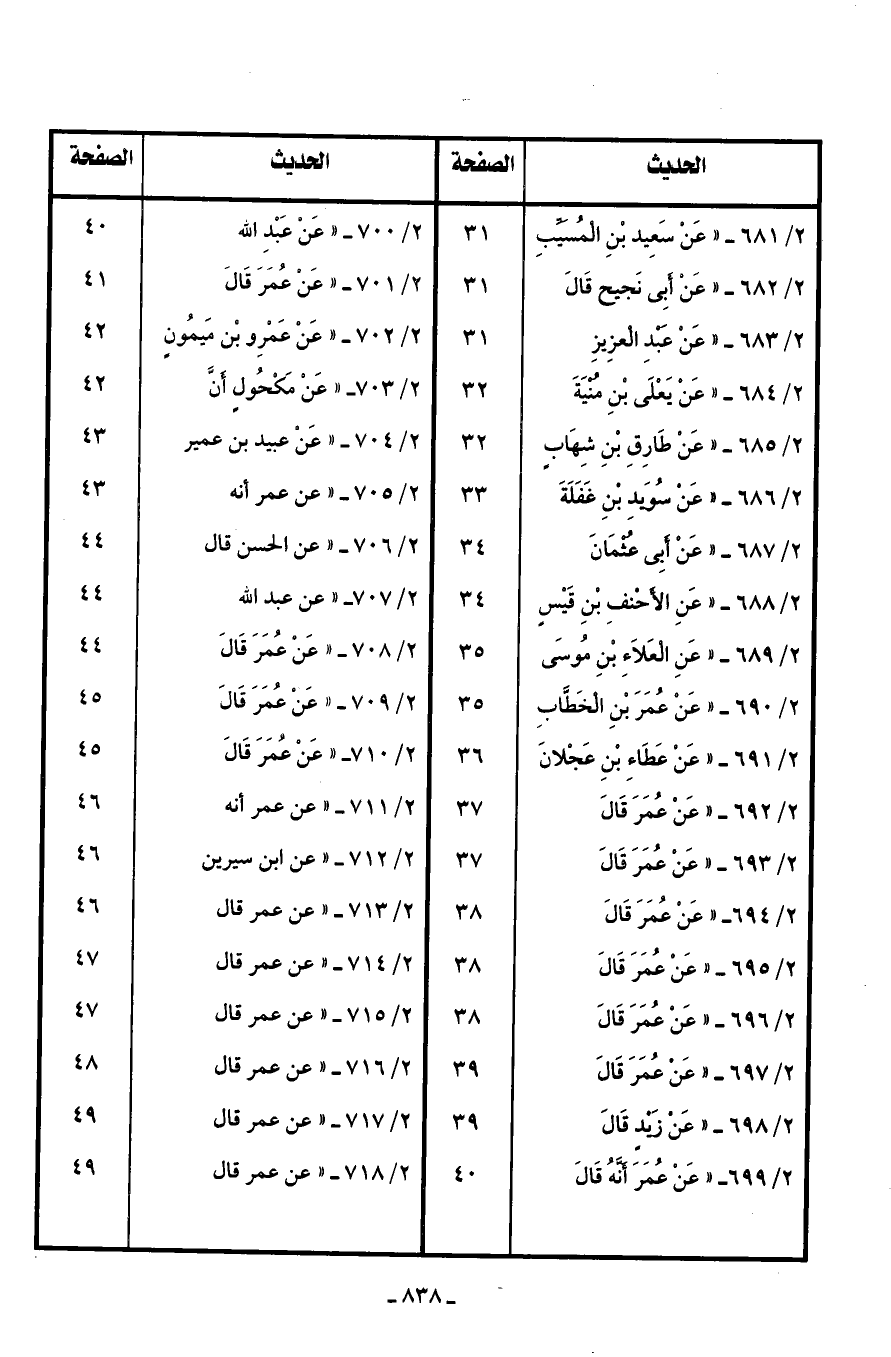 الحديث الصفحة الحديث الصفحة
٢/ ٦٨١ ـ « عَنْ سَعِيد بْنِ الْمُسَيَّبِ ٣١
٢/ ٦٨٢ ـ « عَنْ أَبِى نَجيح قَالَ ٣١
٢/ ٦٨٣ ـ « عَنْ عَبْدِ الْعزِيزِ ٣١
٢/ ٦٨٤ ـ « عَنْ يَعْلَى بْنِ مُنْيَةَ ٣٢
٢/ ٦٨٥ ـ « عَنْ طَارِقِ بْنِ شِهَابٍ ٣٢
٢/ ٦٨٦ ـ « عَنْ سُوَيدِ بْنِ غَفَلَةَ ٣٣
٢/ ٦٨٧ ـ « عَنْ أَبِى عثْمَانَ ٣٤
٢/ ٦٨٨ ـ « عَنِ الأَحْنفِ بْنِ قَيْسٍ ٣٤
٢/ ٦٨٩ ـ « عَنِ الْعَلاَءِ بْنِ مُوسَى ٣٥
٢/ ٦٩٠ ـ « عَنْ عُمَرَ بْنِ الْخَطَّابِ ٣٥
٢/ ٦٩١ ـ « عَنْ عَطَاءِ بْنِ عَجْلانَ ٣٦
٢/ ٦٩٢ ـ « عَنْ عُمَرَ قَالَ ٣٧
٢/ ٦٩٣ ـ « عَنْ عُمَرَ قَالَ ٣٧
٢/ ٦٩٤ـ « عَنْ عُمَرَ قَالَ ٣٨
٢/ ٦٩٥ ـ « عَنْ عُمَرَ قَالَ ٣٨
٢/ ٦٩٦ ـ « عَنْ عُمَرَ قَالَ ٣٨
٢/ ٦٩٧ ـ « عَنْ عُمَرَ قَالَ ٣٩
٢/ ٦٩٨ ـ « عَنْ زَيْدٍ قَالَ ٣٩
٢/ ٦٩٩ـ « عَنْ عُمَرَ أَنَّهُ قَالَ ٤٠
٢/ ٧٠٠ ـ « عَنْ عَبْدِ الله ٤٠
٢/ ٧٠١ ـ « عَنْ عُمَرَ قَالَ ٤١
٢/ ٧٠٢ ـ « عَنْ عَمْرِو بْن مَيمُونٍ ٤٢
٢/ ٧٠٣ـ « عَنْ مَكْحُولٍ أَنَّ ٤٢
٢/ ٧٠٤ ـ « عَنْ عبيد بن عمير ٤٣
٢/ ٧٠٥ ـ « عن عمر أنه ٤٣
٢/ ٧٠٦ ـ « عن الحسن قال ٤٤
٢/ ٧٠٧ـ « عن عبد الله ٤٤
٢/ ٧٠٨ ـ « عَنْ عُمَرَ قَالَ ٤٤
٢/ ٧٠٩ ـ « عَنْ عُمَرَ قَالَ ٤٥
٢/ ٧١٠ـ « عَنْ عُمَرَ قَالَ ٤٥
٢/ ٧١١ ـ « عن عمر أنه ٤٦
٢/ ٧١٢ ـ « عن ابن سيرين ٤٦
٢/ ٧١٣ ـ « عن عمر قال ٤٦
٢/ ٧١٤ ـ « عن عمر قال ٤٧
٢/ ٧١٥ ـ « عن عمر قال ٤٧
٢/ ٧١٦ ـ « عن عمر قال ٤٨
٢/ ٧١٧ ـ « عن عمر قال ٤٩
٢/ ٧١٨ ـ « عن عمر قال ٤٩
ـ ٨٣٨ ـ